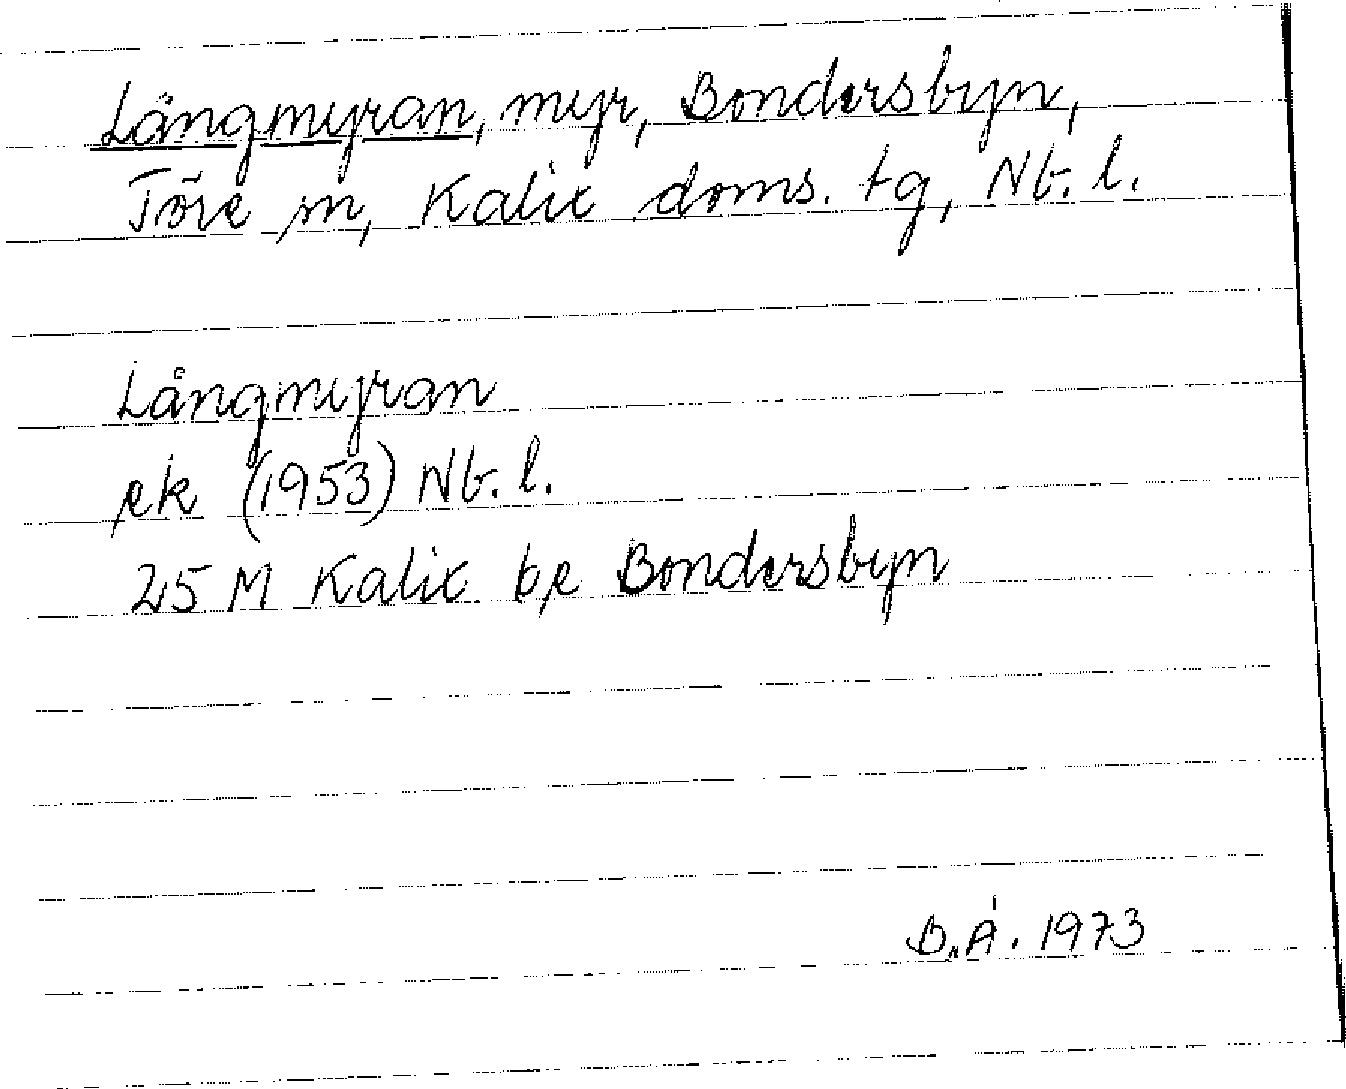 Långmyran, myr, Bondersbyn,
Töre sn, Kalix doms. tg, Nb. l.
Långmyran
ek (1953) Nb. l.
25 M Kalix bl Bondersbyn
B.Å. 1973